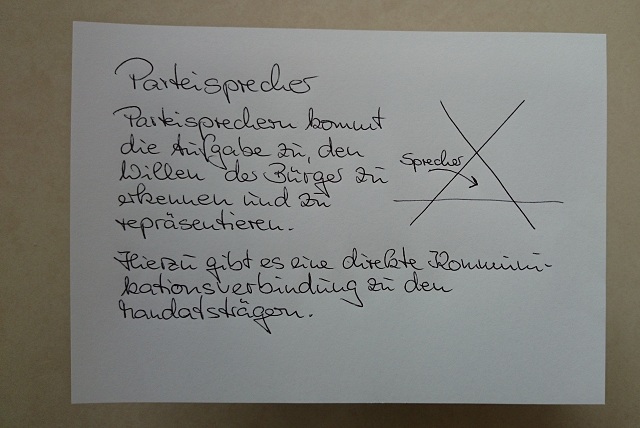 Parteisprecher
Parteisprechern kommt
die Aufgabe zu, den
Willen des Bürger zu
erkennen und zu
repräsentieren.
Sprecher
Hierzu gibt es eine direkte Kommuni-
kationsverbindung zu den
Mandatsträgern.